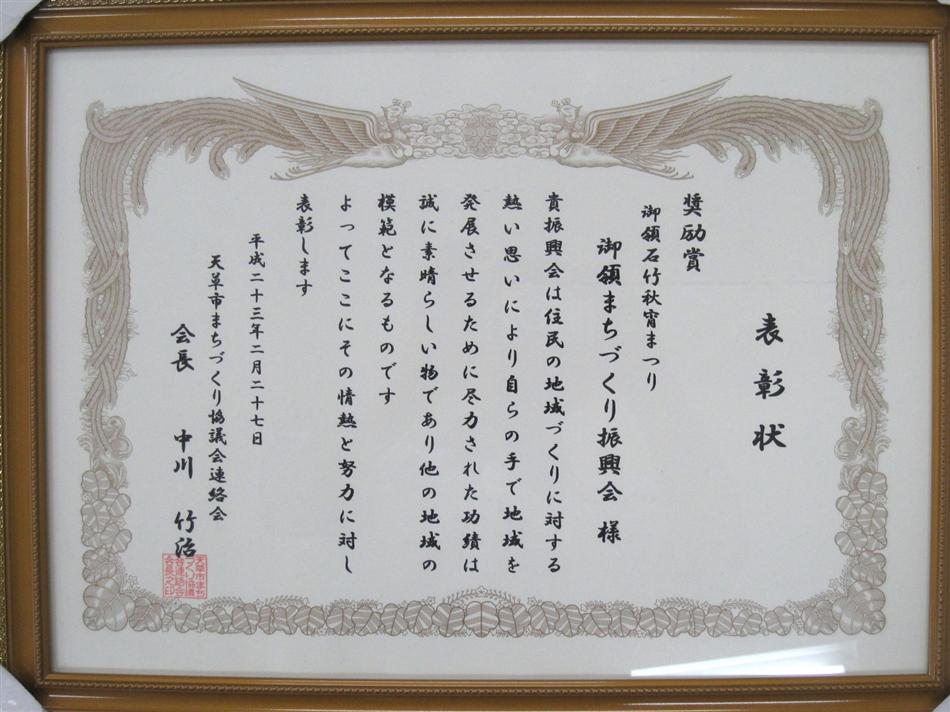 表彰状
奨励賞
御領石竹秋宵まつり
御領まちづくり振興会 様
貴振興会は住民の地域づくりに対する
熱い思いにより自らの手で地域を
発展させるために尽力された功績は
誠に素晴らしい物であり他の地域の
模範となるものです
よってここにその情熱と努力に対し
表彰します
平成二十三年二月二十七日
天草市まちづくり協議会連絡会
会長 中川 竹治
天草市まち
づくり協議
会連絡会
会長之印